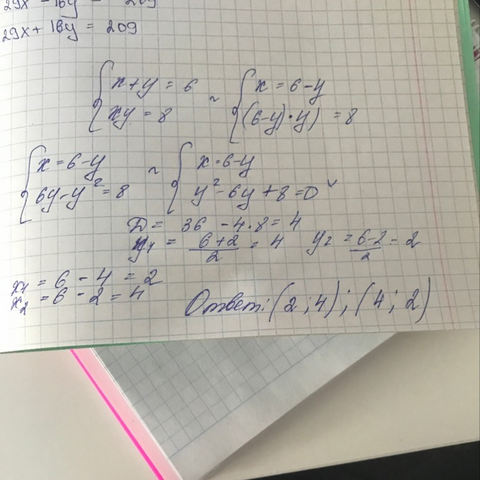 29x - 18y = 209
29x + 18y = 209
{ x+y = 6 ~ { x = 6-y
{ xy = 8 { (6-y)·y) = 8
{ x = 6-y ~ { x = 6-y
{ 6y-y² = 8 { y² - 6y + 8 = 0
D = 36 - 4·8 = 4
y₁ = (6+2)/2 = 4 y₂ = (6-2)/2 = 2
x₁ = 6 - 4 = 2
x₂ = 6 - 2 = 4
Ответ: (2; 4); (4; 2)